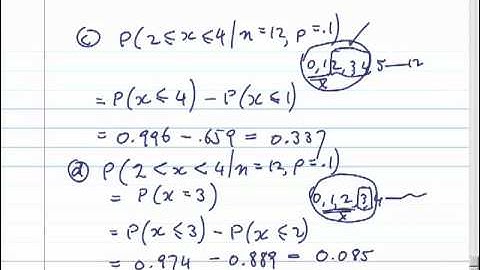 (c) P(2≤x≤4/n=12, p=.1)
0,1 2,3 4, 5—12
x
= P(x≤4) - P(x≤1)
= 0.996 - .659 = 0.337
(d) P(2<x<4/n=12, p=.1)
= P(x=3)
0,1,2,3,4
x
= P(x≤3) - P(x≤2)
= 0.974 - 0.889 = 0.085